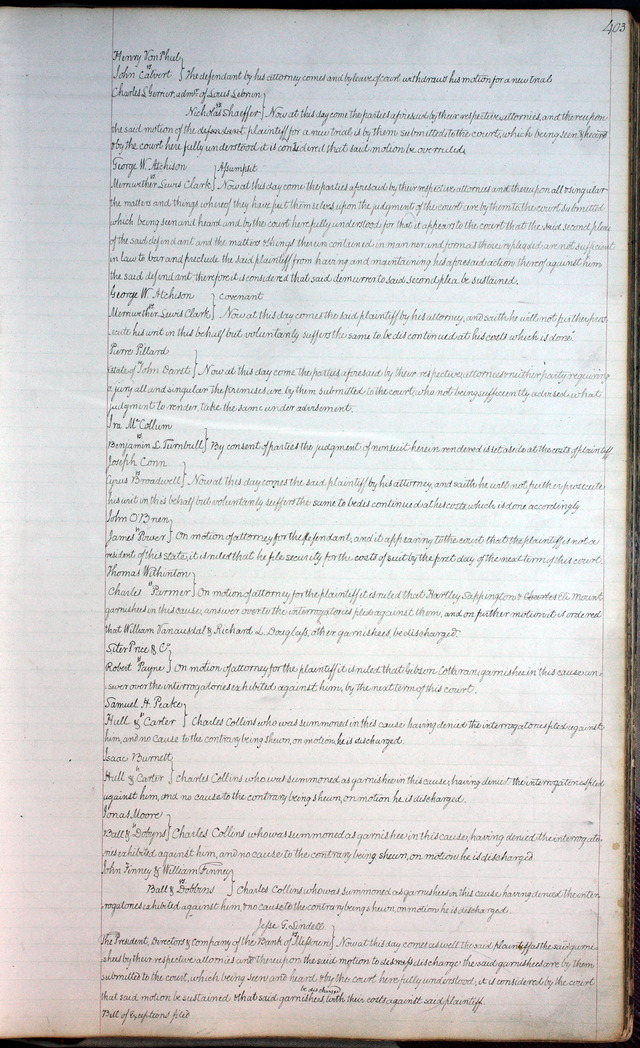 403
Henry Von Phul
vs
John Calvert } The defendant by his attorney comes and by leave of court withdraws his motion for a new trial
Charles L Gerrier, admr. of Louis Lebrun
vs
Nicholas Shaeffer } Now at this day come the parties aforesaid by their respective attornies, and thereupon
the said motion of the defendant plaintiff for a new trial is by them submitted to the court, which being seen & heard
& by the court here fully understood it is considered that said motion be overruled.
George W. Atchison } Assumpsit
vs
Merriwether Lewis Clark } Now at this day come the parties aforesaid by their respective attornies and thereupon all & singular
the matters and things whereof they have put themselves upon the judgment of the court are by them to the court submitted
which being seen and heard and by the court here fully understood; for that it appears to the court that the said second plea
of the said defendant and the matters & things therein contained in manner and form as therein pleaded are not sufficient
in law to bar and preclude the said plaintiff from having and maintaining his aforesaid action thereof against him
the said defendant therefore it is considered that said demurrer to said second plea be sustained.
George W. Atchison } Covenant
vs
Merriwether Lewis Clark } Now at this day comes the said plaintiff by his attorney, and saith he will not further prose-
cute his writ in this behalf but voluntarily suffers the same to be discontinued at his costs which is done.
Pierre Pillard
vs
Estate of John Darst } Now at this day come the parties aforesaid by their respective attornies & neither party requiring
a jury all and singular the premises are by them submitted to the court, who not being sufficiently advised what
judgment to render, take the same under advisement.
Ira McCollum
vs
Benjamin L. Turnbull } By consent of parties the judgment of nonsuit herein rendered is set aside at the costs of plaintiff
Joseph Conn
vs
Cyrus Broadwell } Now at this day comes the said plaintiff by his attorney, and saith he will not further prosecute
his writ in this behalf but voluntarily suffers the same to be discontinued at his costs, which is done accordingly
John O'Brien
vs
James Power } On motion of attorney for the defendant, and it appearing to the court that the plaintiff is not a
resident of this state, it is ruled that he file security for the costs of suit by the first day of the next term of this court.
Thomas Withinton
vs
Charles } On motion of attorney for the plaintiff it is ruled that Hartley Sappington & Charles Mount
garnishees in this cause, answer over to the interrogatories filed against them, and on further motion it is ordered
that William Vanausdal & Richard L. Douglass, other garnishees, be discharged.
Siter Price & Co
vs
Robert Payne } On motion of attorney for the plaintiff it is ruled that Gibson Cothran, garnishee in this cause an-
swer over the interrogatories exhibited against him, by the next term of this court.
Samuel H. Peake
vs
Hull & Carter } Charles Collins who was summoned in this cause having denied the interrogatories filed against
him, and no cause to the contrary being shewn, on motion, he is discharged.
Isaac Burnett
vs
Hull & Carter } Charles Collins who was summoned as garnishee in this cause, having denied the interrogatories filed
against him, and no cause to the contrary being shewn, on motion he is discharged.
Jonas Moore
vs
Ball & Dobyns } Charles Collins who was summoned as garnishee in this cause, having denied the interrogato-
ries exhibited against him, and no cause to the contrary being shewn, on motion he is discharged.
John Finney & William Finney
vs
Ball & Dobbins } Charles Collins who was summoned as garnishee in this cause having denied the inter-
rogatories exhibited against him, & no cause to the contrary being shewn, on motion he is discharged.
Jesse G. Lindell
vs
The President, Directors & Company of the Bank of Missouri } Now at this day comes as well the said plaintiff as the said garni-
shees by their respective attornies and thereupon the said motion to dismiss discharge the said garnishees are by them
submitted to the court, which being seen and heard & by the court here fully understood, it is considered by the court
be discharged
that said motion be sustained & that said garnishees with their costs against said plaintiff.
Bill of Exceptions filed